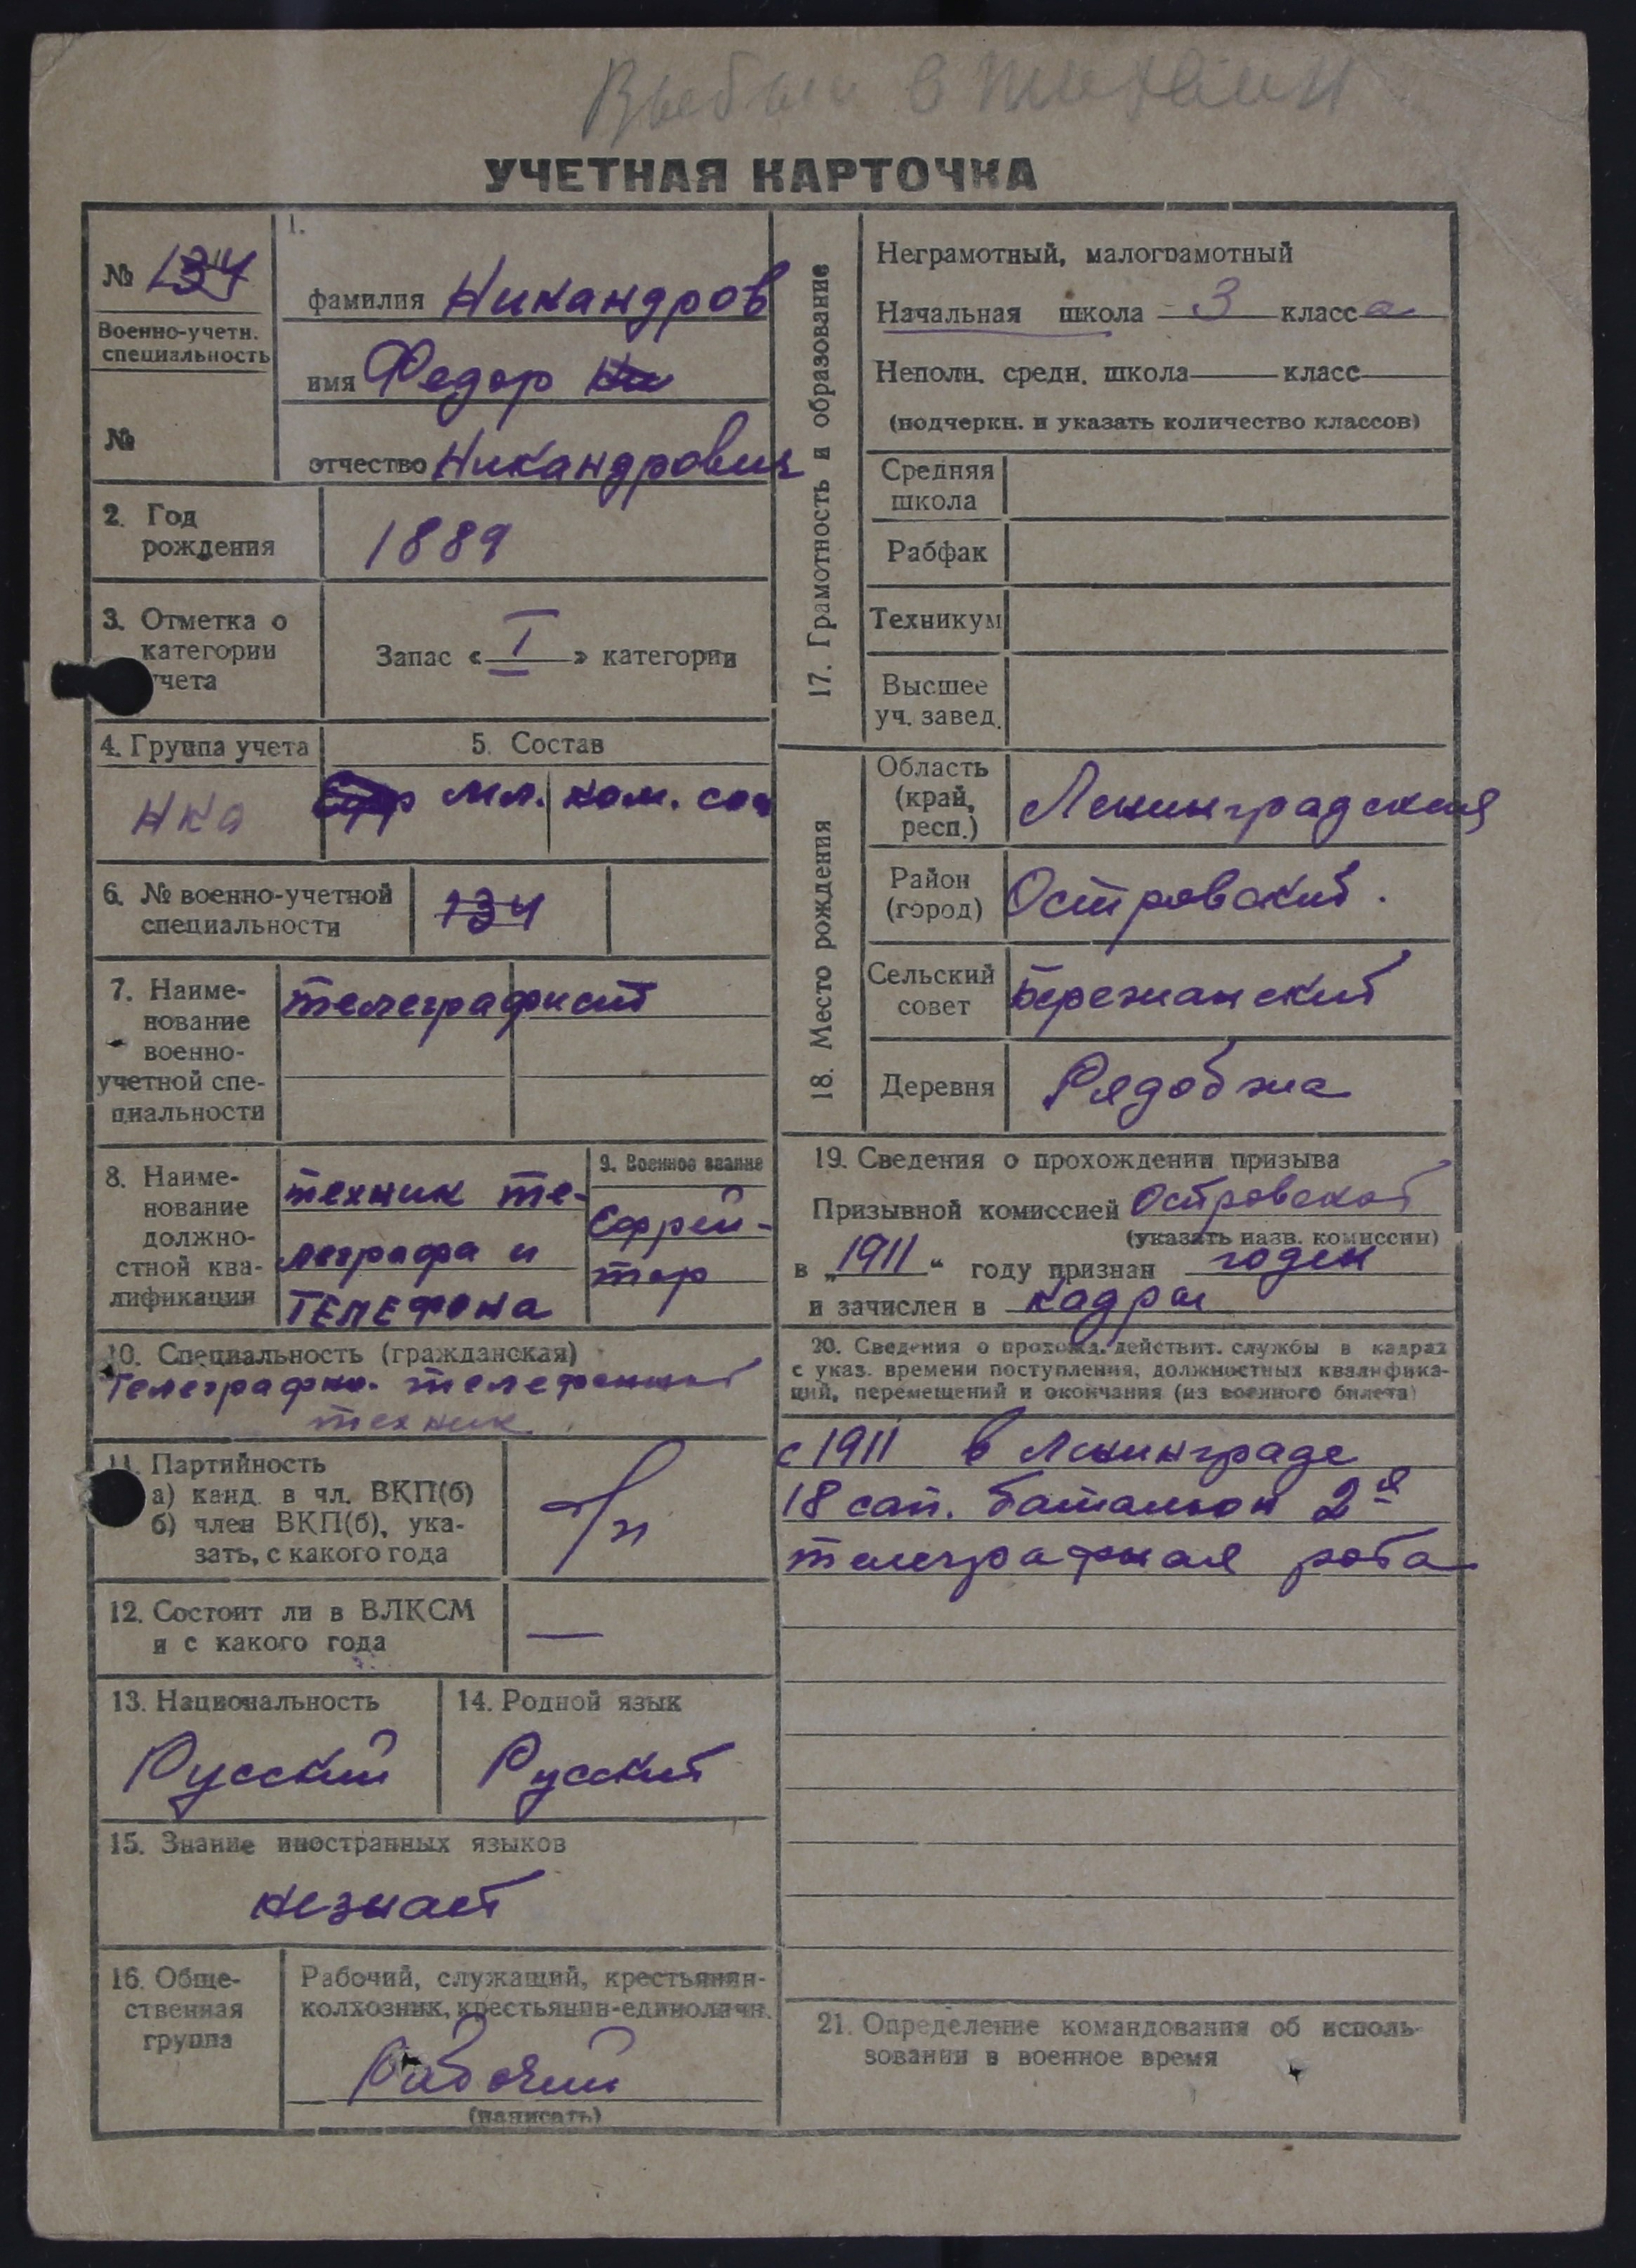 Выбыл в Тихвин
УЧЕТНАЯ КАРТОЧКА
№ 134
Военно-учетн.
специальность
№
1.
фамилия Никандров
имя Федор
отчество Никандрович
2. Год
рождения
1889
3. Отметка о
категории
учета
Запас « I » категории
4. Группа учета
НКО
5. Состав
мл. ком. сос
6. № военно-учетной
специальности
134
7. Наиме-
нование
военно-
учетной спе-
циальности
телеграфист
8. Наиме-
нование
должно-
стной ква-
лификации
техник те-
леграфа и
ТЕЛЕФОНА
9. Военное звание
Ефрей-
тор
10. Специальность (гражданская)
Телеграфно-телефонный
техник
11. Партийность
а) канд. в чл. ВКП(б)
б) член ВКП(б), ука-
зать, с какого года
б/п
12. Состоит ли в ВЛКСМ
и с какого года
—
13. Национальность
Русский
14. Родной язык
Русский
15. Знание иностранных языков
незнает
16. Обще-
ственная
группа
Рабочий, служащий, крестьянин-
колхозник, крестьянин-единоличн.
Рабочий
(написать)
17. Грамотность и образование
Неграмотный, малограмотный
Начальная школа 3 класса
Неполн. средн. школа класс
(подчеркн. и указать количество классов)
Средняя
школа
Рабфак
Техникум
Высшее
уч. завед.
18. Место рождения
Область
(край,
респ.)
Ленинградская
Район
(город)
Островский.
Сельский
совет
Бережанский
Деревня
Рядобжа
19. Сведения о прохождении призыва
Призывной комиссией Островской
(указать назв. комиссии)
в „1911“ году признан годен
и зачислен в кадры
20. Сведения о прохожд. действит. службы в кадрах
с указ. времени поступления, должностных квалифика-
ций, перемещений и окончания (из военного билета)
с 1911 в Ленинграде
18 сап. батальон 2я
телеграфная рота
21. Определение командования об исполь-
зовании в военное время